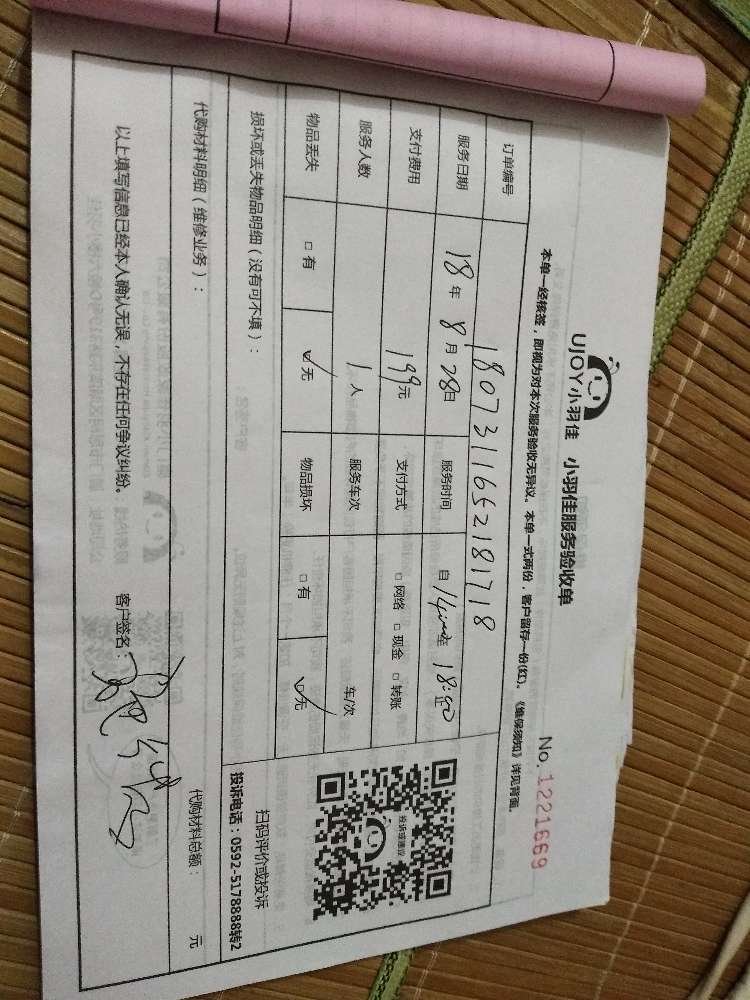 UJOY小羽佳 小羽佳服务验收单
No.1221669
本单一经核签，即视为对本次服务验收无异议。本单一式两份，客户留存一份(红)。《维保须知》详见背面。
订单编号 1807311652181718
服务日期 18年8月28日 服务时间 自 至 止
支付费用 199元 支付方式 □网络 □现金 □转账
服务人数 1人 服务车次 车/次
物品丢失 □有 ☑无 物品损坏 □有 ☑无
投诉或建议
扫码评价或投诉
投诉电话：0592-5178888转2
损坏或丢失物品明细（没有可不填）：
代购材料明细（维修业务）： 代购材料总额： 元
以上填写信息已经本人确认无误，不存在任何争议纠纷。 客户签名：